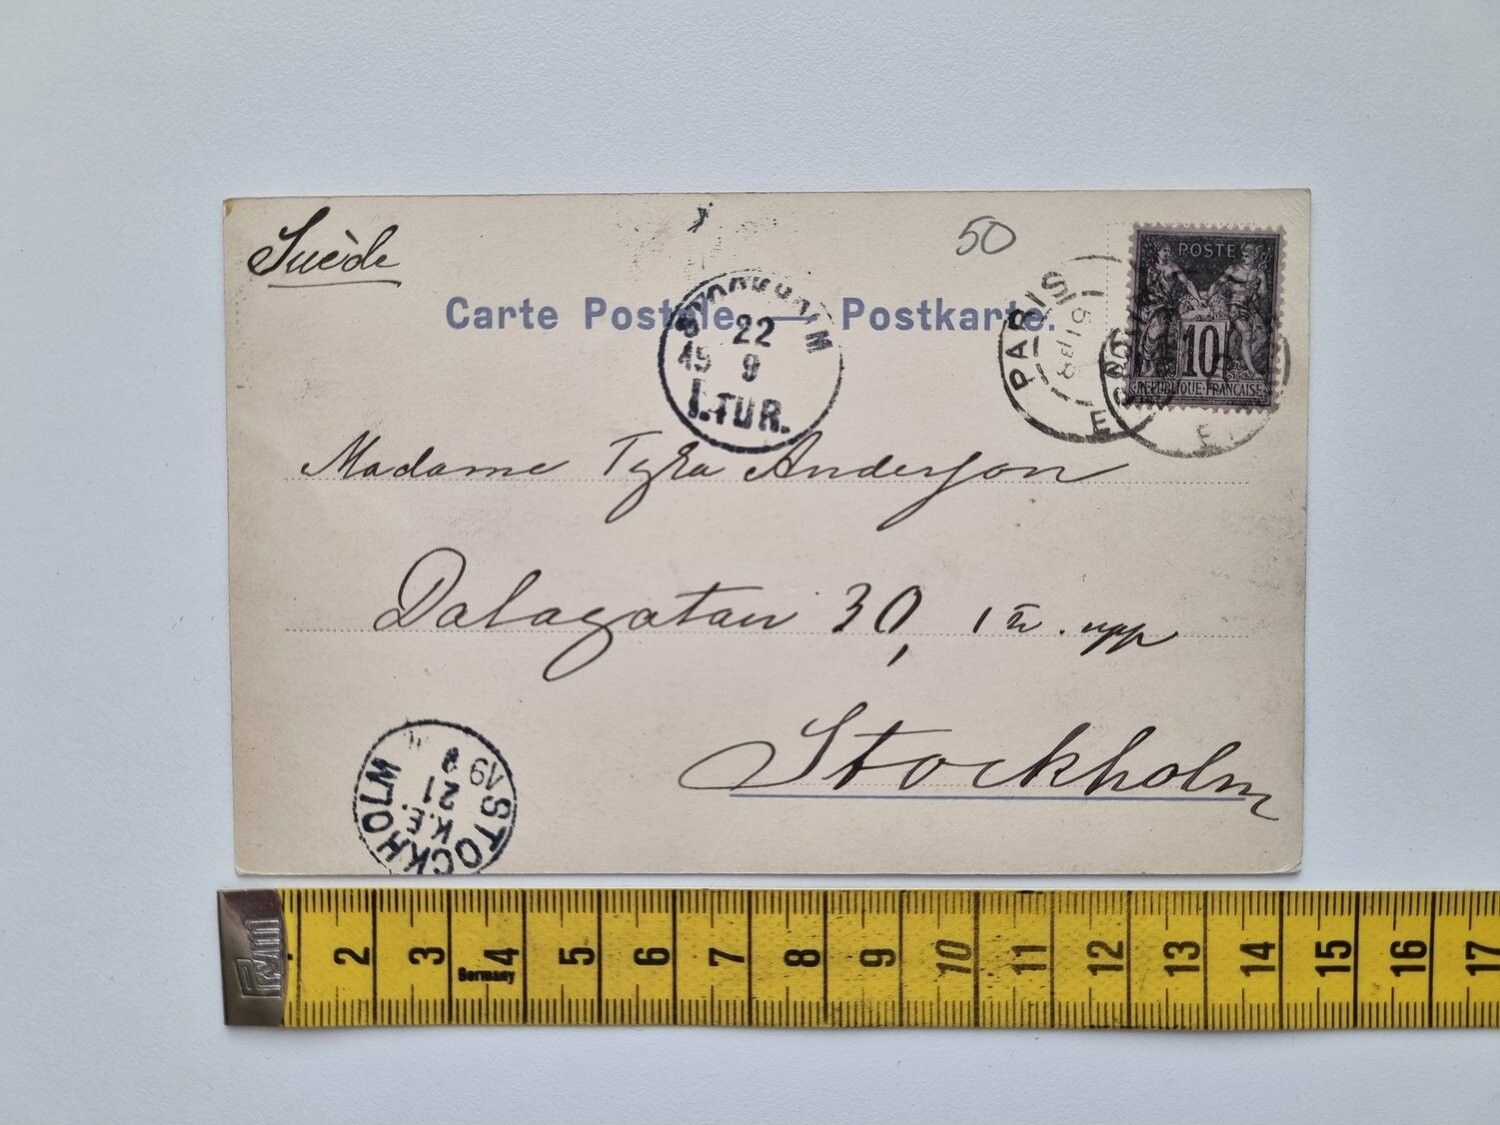 Suède
50
POSTE
10
REPUBLIQUE FRANCAISE
Carte Postale — Postkarte.
STOCKHOLM
22
9
I.TUR.
PARIS
Madame Tyra Anderson
Dalagatan 30, 1 tr. upp
Stockholm
STOCKHOLM
K.E.
21
9
Prym
2 3 4 5 6 7 8 9 10 11 12 13 14 15 16 17
Germany